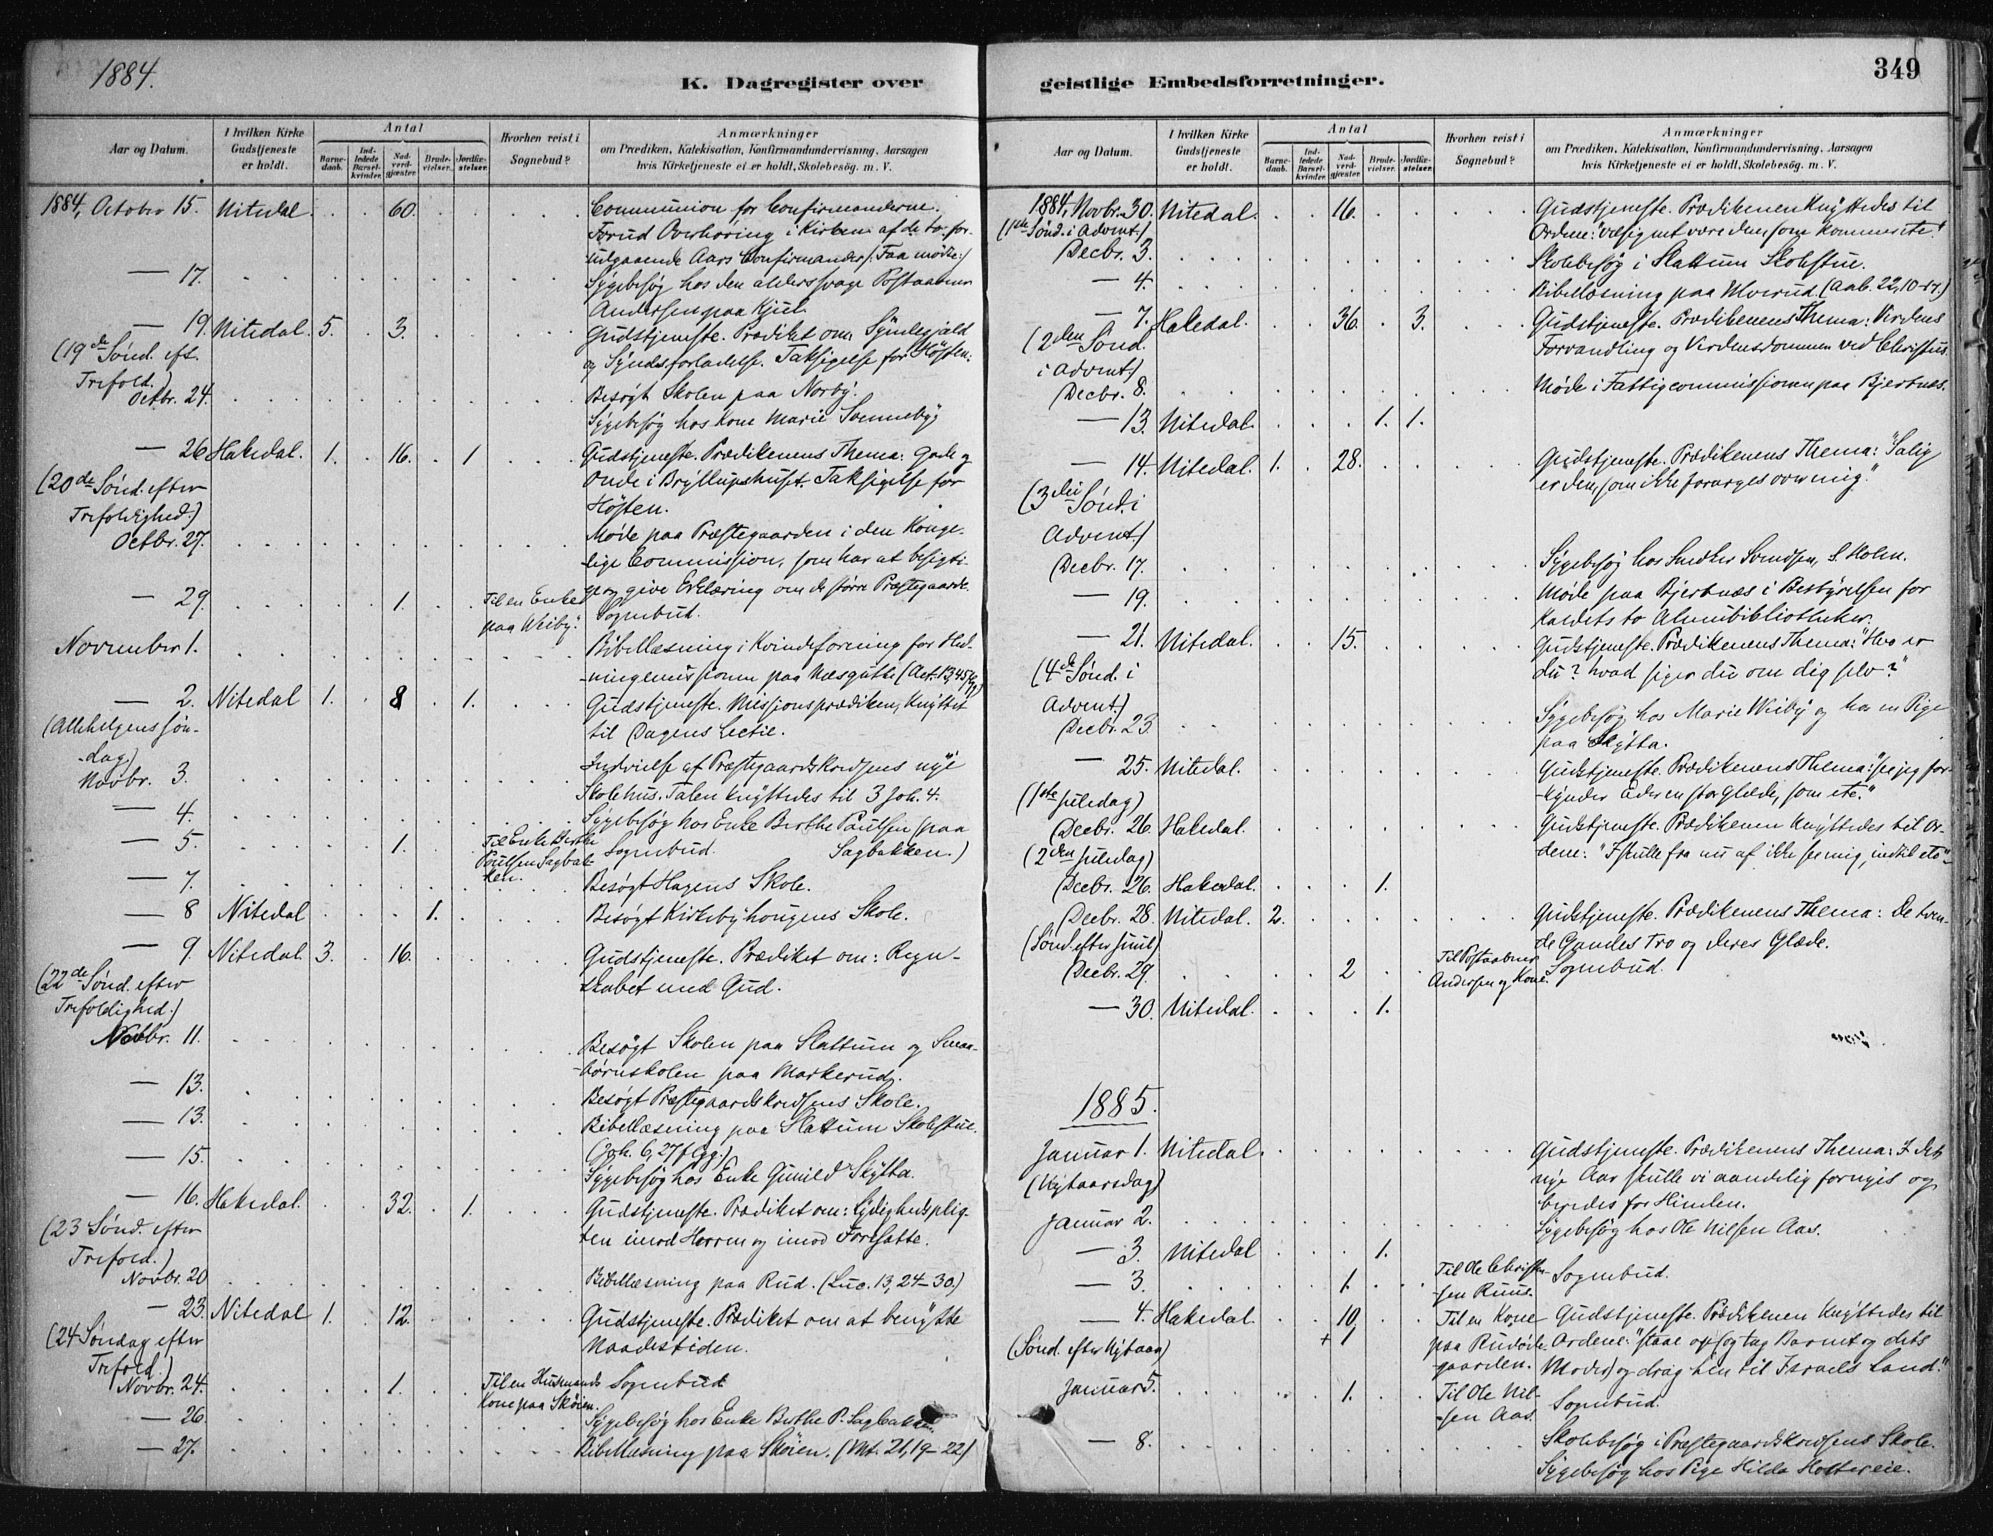 1884.
K. Dagregister over
Aar og Datum.
I hvilken Kirke Gudstjeneste er holdt.
Antal
Barnedaab.
Indledede Barselkvinder.
Nadverdgjæster
Brudevielser.
Jordfæstelser.
Hvorhen reist i Sognebud?
Anmærkninger
om Prædiken, Katekisation, Konfirmandundervisning, Aarsagen
hvis Kirketjeneste ei er holdt, Skolebesøg, m. V.
1884, October 15. Nitedal. 60. Communion for Confirmanderne.
Forud Overhøring i Kirken af de to for-
udgaaende Aars Confirmander (Faa mødte.)
— 17. Sygebesøg hos den aldersvage Postaabner
Andersen paa Kjul.
— 19. Nitedal. 5. 3. Gudstjeneste. Prædiket om: Syndegjæld
(19de Sønd. eft. og Syndsforladelse. Taksigelse for Høsten.
Trefold.
Octbr. 24. Besøgt Skolen paa Norby.
Sygebesøg hos Kone Marie
— 26 Hakedal. 1. 16. 1 Gudstjeneste. Prædikenens Thema: Gode og
(20de Sønd. efter Onde i Bryllupshuset. Taksigelse for
Trefoldighed.) Høsten.
Octbr. 27. Møde paa Præstegaarden i den Konge-
lige Commission, som har at besigti-
ge og give Erklæring om de større Præstegaarde.
— 29. 1. Til en Enke Sognebud.
paa Weiby.
November 1. Bibellæsning i Kvindeforening for Hed-
-ningemissionen paa
— 2. Nitedal 1. 8 1. Gudstjeneste. Missionsprædiken, knyttet
(Allehelgenssøn- til Dagens Lectie.
-dag)
Novbr. 3. Indvielse af Præstegaardskredsens nye
Skolehus. Talen knyttedes til 3 Joh. 4.
— 4. Sygebesøg hos Enke Berthe Paulsen (paa
Sagbakken.)
— 5. 1. Til Enke Berthe Sognebud.
Paulsen Sagbak-
ken.
— 7. Besøgt Hagens Skole.
— 8 Nitedal 1. Besøgt Kirkebyhougens Skole.
— 9. Nitedal 3. 16. Gudstjeneste. Prædiket om: Regn-
(22de Sønd. efter skabet med Gud.
Trefoldighed.)
Novbr. 11. Besøgt Skolen paa Slattum og Smaa-
-børnskolen paa Markerud.
— 13. Besøgt Præstegaardskredsens Skole.
— 13. Bibellæsning paa Slattum Skolestue.
(Joh. 6, 27 f Gg.)
— 15. Sygebesøg hos Enke Gunild Skytta.
— 16. Hakedal. 32. 1. Gudstjeneste. Prædiket om: Lydighedsplig-
(23 Sønd. efter ten imod Herren og imod Foresatte.
Trefold.)
Novbr. 20 Bibellæsning paa Rud. (Luc. 13, 24–30.)
— 23. Nitedal 1. 12. Gudstjeneste. Prædiket om at benytte
(24 Søndag efter Naadestiden.
Trefold.)
Novbr. 24. 1. Til en Husmands Sognebud
Kone paa Skøien.
— 26. Sygebesøg hos Enke Berthe P. Sagbakken.
— 27. Bibellæsning paa Skøien. (Mt. 21, 19–22)
geistlige Embedsforretninger.
349
Aar og Datum.
I hvilken Kirke Gudstjeneste er holdt.
Antal
Barnedaab.
Indledede Barselkvinder.
Nadverdgjæster
Brudevielser.
Jordfæstelser.
Hvorhen reist i Sognebud?
Anmærkninger
om Prædiken, Katekisation, Konfirmandundervisning, Aarsagen
hvis Kirketjeneste ei er holdt, Skolebesøg, m. V.
1884, Novbr. 30. Nitedal. 16. Gudstjeneste. Prædikenen knyttedes til
(1ste Sønd. i Advent.) Ordene: "velsignet være den, som kommer etc."
Decbr. 3. Skolebesøg i Slattum Skolestue.
— 4. Bibellæsning paa Mverud. (Aab. 22,
— 7. Hakedal. 36. 3. Gudstjeneste. Prædikenens Thema: Verdens
(2den Sønd. Forvandling og Verdensdommen ved Christus.
i Advent.)
Decbr. 8. Møde i Fattigcommissionen paa Bjertnes.
— 13. Nitedal. 1. 1.
— 14. Nitedal. 1. 28. Gudstjeneste. Prædikenens Thema: "Salig
(3die Sønd. i er den, som ikke forarges over mig."
Advent.)
Decbr. 17. Sygebesøg hos Snedker Svendsen, S. Holm.
— 19. Møde paa Bjertnæs i Bestyrelsen for
Kaldets to Almuebibliotheker.
— 21. Nitedal. 15. Gudstjeneste. Prædikenens Thema: "Hvo er
(4de Sønd. i du? hvad siger du om dig selv?"
Advent.)
Decbr. 23. Sygebesøg hos Marie Weiby og hos en Pige
paa Skytta.
— 25. Nitedal. Gudstjeneste. Prædikenens Thema: "se jeg for-
(1ste Juledag) -kynder Eder en stor Glæde, som etc."
Decbr. 26. Hakedal. Gudstjeneste. Prædikenen knyttedes til Or-
(2den Juledag) dene: "I skulle fra nu af ikke see mig, indtil etc"
Decbr. 26. Hakedal. 1.
Decbr. 28. Nitedal. 2. Gudstjeneste. Prædikenens Thema: De tven-
(Sønd. efter Juul) de Gamles Tro og deres Glæde.
Decbr. 29. 2 Til Postaabner Sognebud.
Andersen og Kone.
— 30. Nitedal. 1.
1885.
Januar 1. Nitedal. Gudstjeneste. Prædikenens Thema: I det
(Nytaarsdag) nye Aar skulle vi aandelig fornyes og
beredes for Himlen.
Januar 2. Sygebesøg hos Ole Nilsen Aas.
— 3. Nitedal 1.
— 3. 1. Til Ole Christen- Sognebud.
sen Ruus.
— 4. Hakedal. 10, Til en Kone Gudstjeneste. Prædikenen knyttedes til
(Sønd. efter Nytaar) + 1 paa Rudøde- Ordene: "staae op og tag Barnet og dets
gaarden. Moder, og drag hen til Israels Land."
Januar 5. 1. Til Ole Nil- Sognebud.
-sen Aas.
— 8. Skolebesøg i Præstegaardskredsens Skole.
Sygebesøg hos Pige Hilda Holtereie.